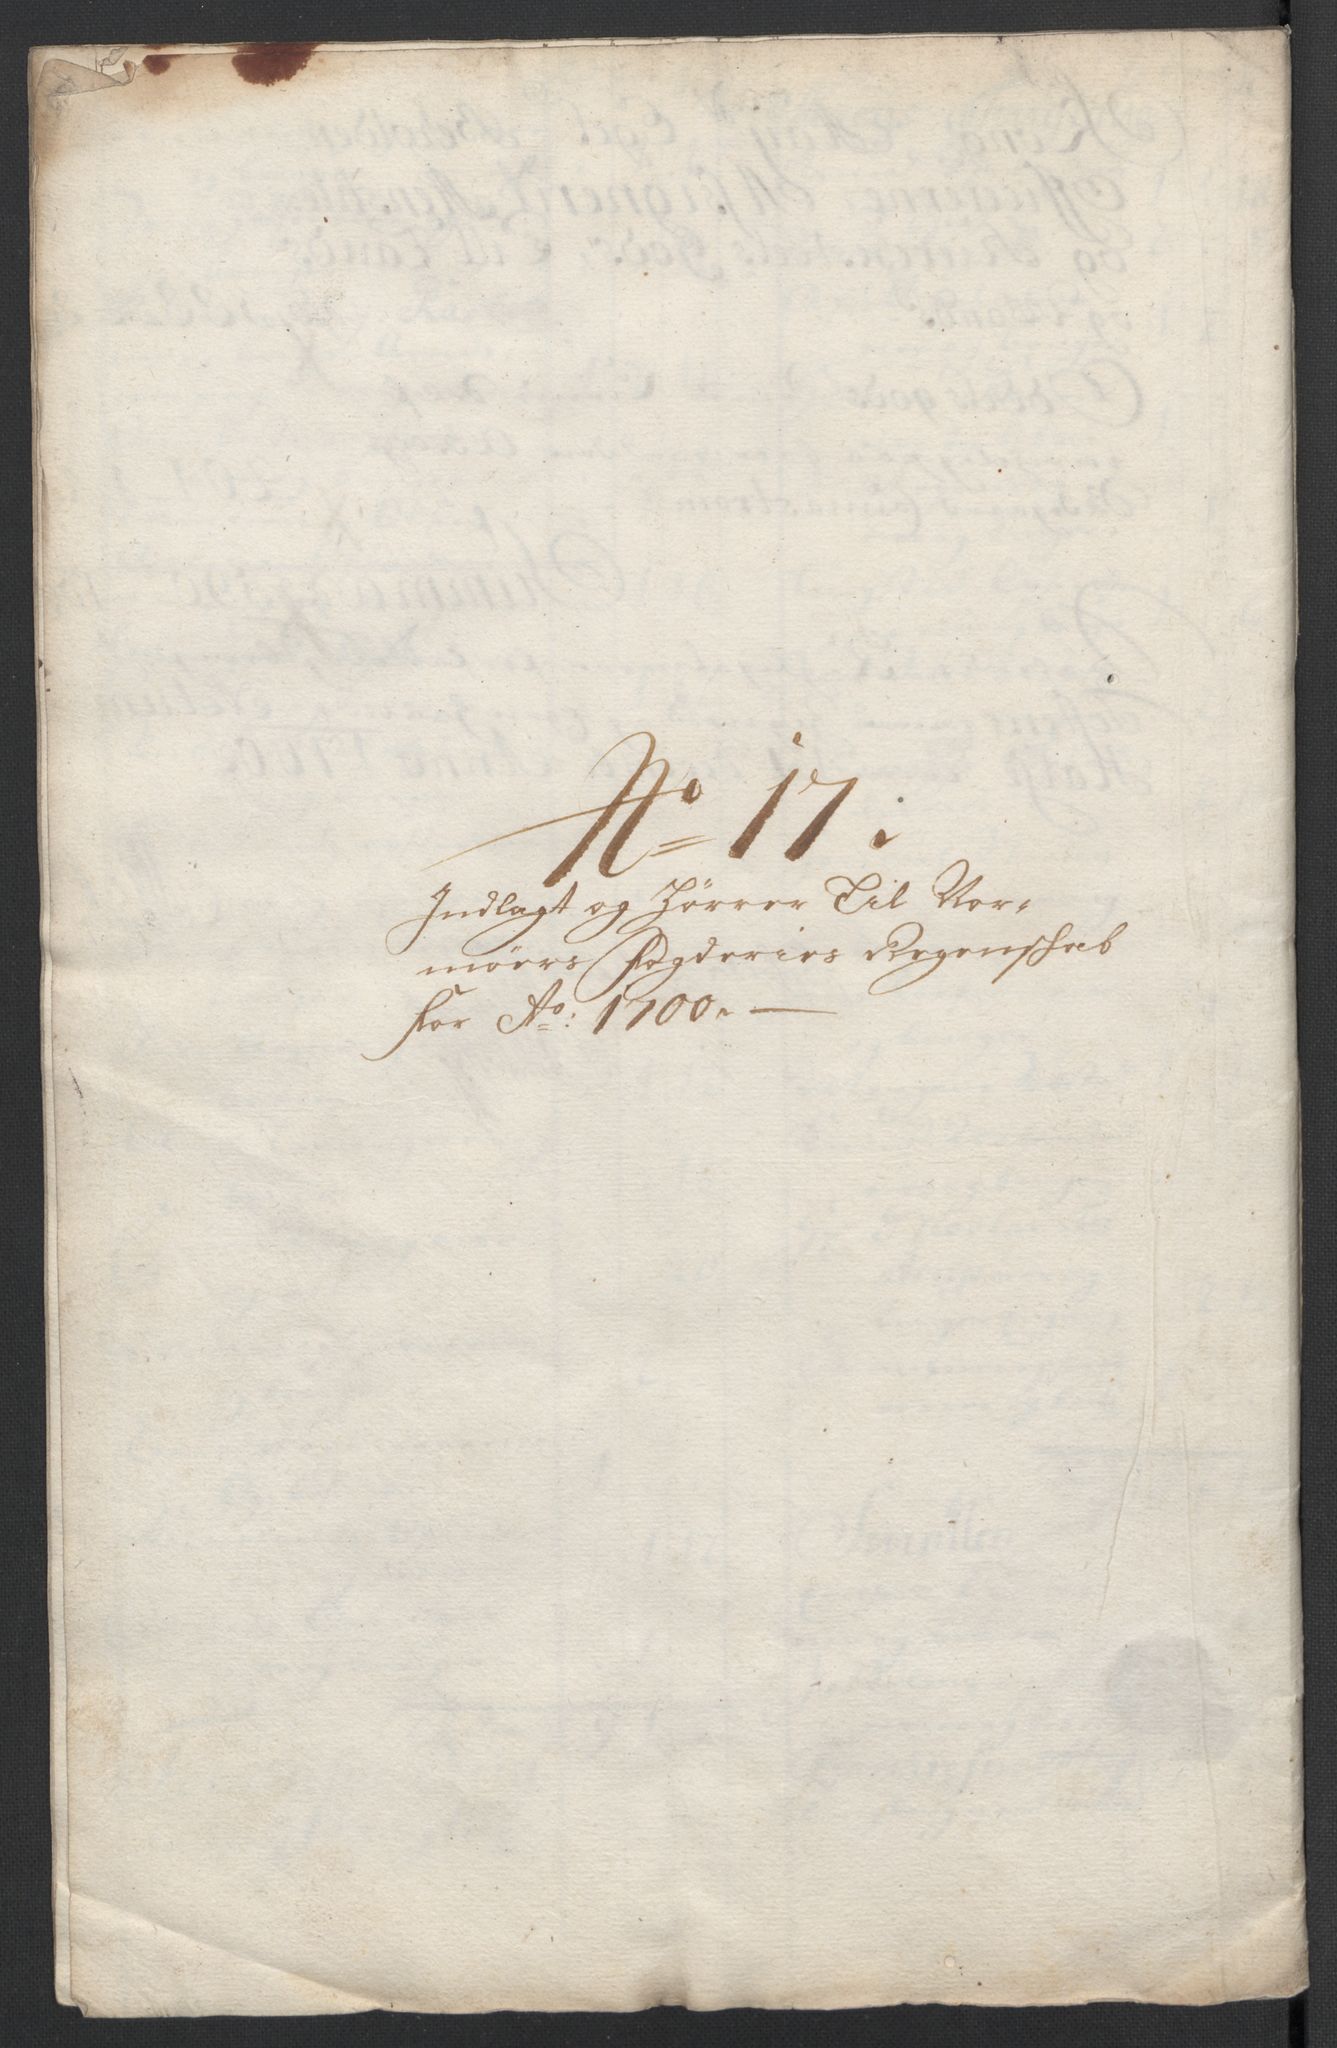 No 17.
Indlagt og Hører Til Nor-
møers Fogderies Regenschab
for Ao: 1700. —